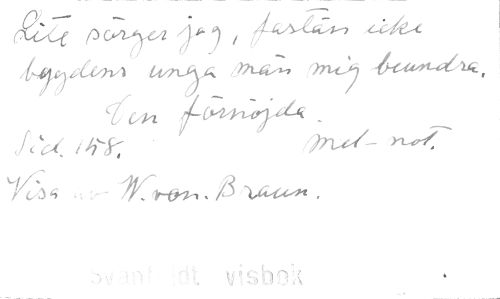 Lite sörger jag, fastän icke
bygdens unga män mig beundra.
Den förnöjda.
Sid. 158. Mel-not.
Visa av W. von. Braun.
visbok